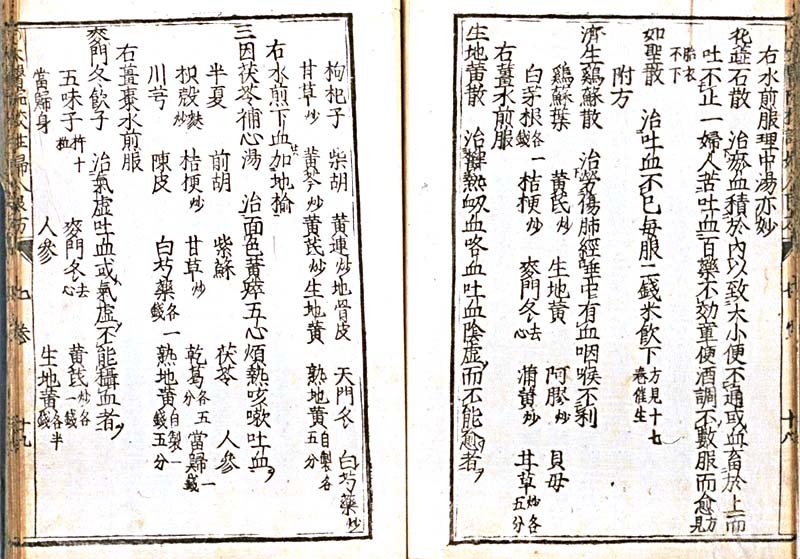 右水煎服理中湯亦妙
花蕊石散 治瘀血積於內以致大小便不通或血畜於上而
吐不止一婦人苦吐血百藥不効童便酒調不數服而愈方見
胎衣不下
如聖散 治吐血不已每服二錢米飲下方見十七卷催生
附方
濟生鷄蘇散 治勞傷肺經唾中有血咽喉不利
鷄蘇葉 黄芪炒 生地黄 阿膠炒 貝母
白茅根各一錢 桔梗炒 麥門冬去心 蒲黄炒 甘草炒各五分
右薑水煎服
生地黄散 治鬱熱衂血咯血吐血陰虛而不能愈者
枸杞子 柴胡 黄連炒 地骨皮 天門冬 白芍藥炒
甘草炒 黄芩炒 黄芪炒 生地黄 熟地黄自製各五分
右水煎下血加地榆
三因茯苓補心湯 治面色黄瘁五心煩熱咳嗽吐血
半夏 前胡 紫蘇 茯苓 人參
枳殼麩炒 桔梗炒 甘草炒 乾葛各五分 當歸一錢
川芎 陳皮 白芍藥各一錢 熟地黄自製一錢五分
右薑棗水煎服
麥門冬飲子 治氣虛吐血或氣虛不能攝血者
五味子十粒杵 麥門冬去心 黄芪炒各一錢
當歸身 人參 生地黄各半錢
七卷
十九
十八